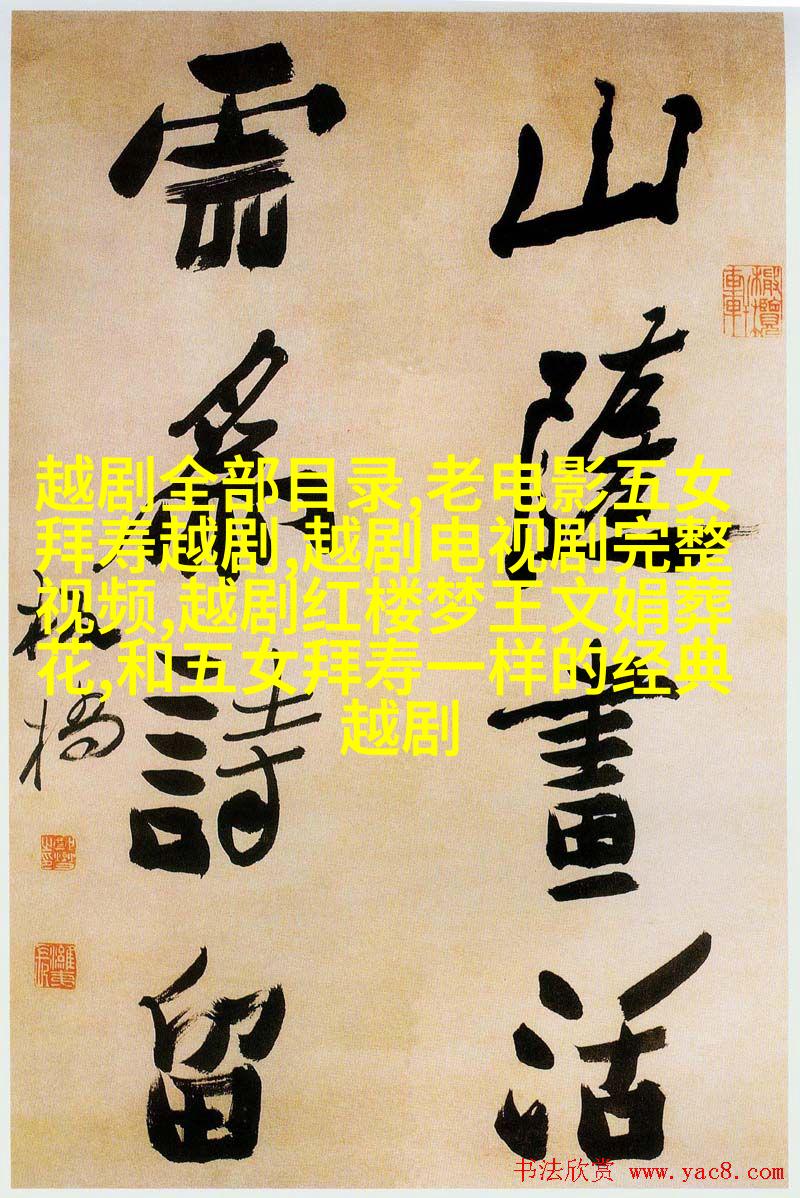 山隨畫活
雲為詩留
板橋
越剧全部目录,老电影五女
拜寿越剧,越剧电视剧完整
视频,越剧红楼梦王文娟葬
花,和五女拜寿一样的经典
越剧
书法欣赏 www.yac8.com